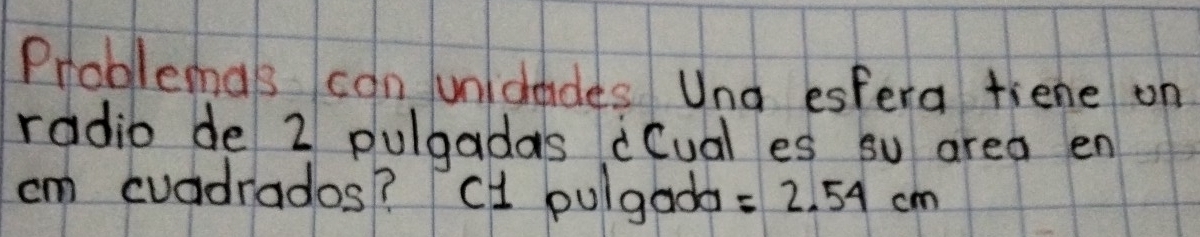 Problemas con unidades Una esfera tiene un
radio de 2 pulgadas ¿Cual es su area en
cm cuadrados? C1 pulgada = 2.54 cm